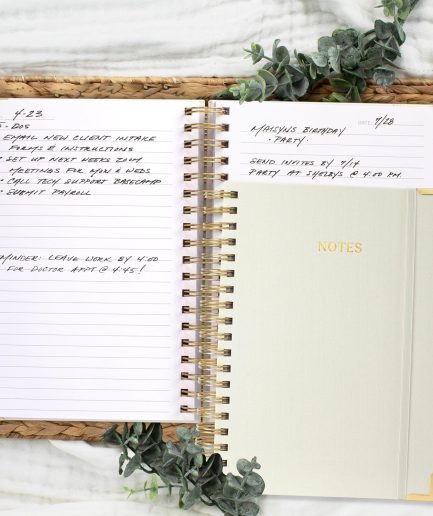 4-23
- DOS
EMAIL NEW CLIENT INTAKE
FORMS & INSTRUCTIONS
• SET UP NEXT WEEKS ZOOM
MEETINGS FOR MON & WEDS
• CALL TECH SUPPORT BASECAMP
• SUBMIT PAYROLL
MINDER: LEAVE WORK BY 4:00
FOR DOCTOR APPT @ 4:45!
DATE: 7/28
MAISYNS BIRTHDAY
• PARTY
SEND INVITES BY 7/14
PARTY AT SHELBYS @ 4:00 PM
NOTES